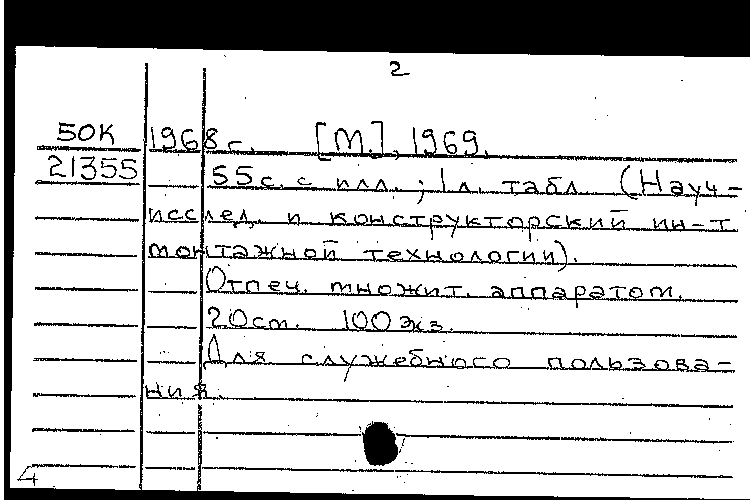 2
50К 1968 г. [М.], 1969.
21355 55 с. с илл.; 1 л. табл. (Науч-
исслед. и конструкторский ин-т
монтажной технологии).
Отпеч. множит. аппаратом.
20 см. 100 экз.
Для служебного пользова-
ния.
4